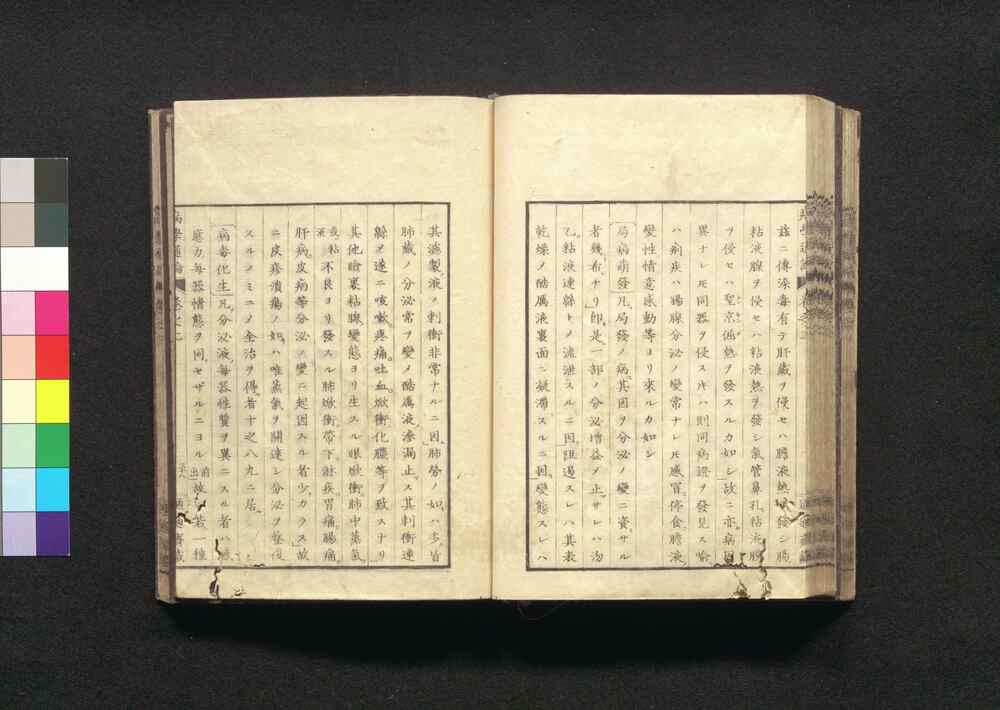 茲ニ傳染毒有テ肝藏ヲ侵セハ膽液熱ヲ發シ腸
粘液腺ヲ侵セハ粘液熱ヲ發シ氣管鼻孔粘液膜
ヲ侵セハ聖京偏熱ヲ發スルカ如シ故ニ亦病因
異ナレ𪜈同器ヲ侵ス片ハ則同病證ヲ發見ス喩
ハ痢疾ハ腸腺分泌ノ變常ナレ𪜈感冒停食膽液
變性情意感動等ヨリ來ルカ如シ
局病萌發凡局發ノ病其因ヲ分泌ノ變ニ資サル
者幾希ナリ即是一部ノ分泌増益メ止サレハ沕
乙粘液連緜トノ流泄スルニ因阻遏スレハ其表
乾燥ノ酷厲液裏面ニ凝濁スルニ因變態スレハ
其濃製液ノ刺衝非常ナルニ因肺勞ノ如ハ多皆
肺藏ノ分泌常ヲ變メ酷厲液滲漏止ス其刺衝連
緜メ遂ニ咳嗽疼痛吐血焮衝化膿等ヲ致スナリ
其他瞼裏粘腺變態ヨリ生スル眼焮衝肺中蒸氣
及粘液不良ヨリ發スル肺焮衝帶下痢疾胃痛腸痛
肝病皮病等分泌ノ變ニ起因スル者少カラス故
ニ皮疹潰瘍ノ如ハ唯蒸氣ヲ開達シ分泌ヲ整復
スルノミニメ全治ヲ得者十之八九ニ居
病毒化生凡分泌液毎器性質ヲ異ニスル者ハ
應力毎器情態ヲ同セザルニヨル前出故若一種
病學通論 卷之